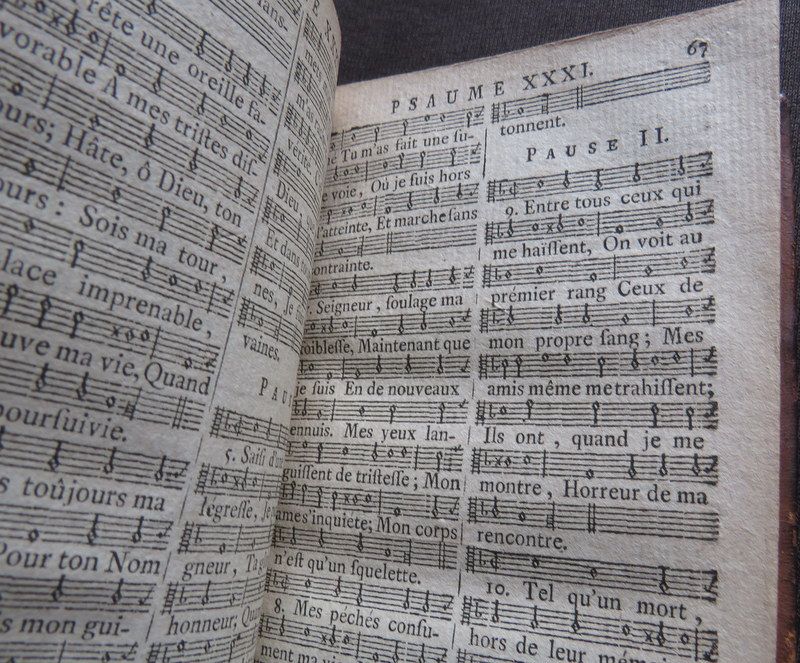 rête une oreille fa-
vorable A mes triſtes diſ-
ours; Hâte, ô Dieu, ton
ours : Sois ma tour,
lace imprenable,
uve ma vie, Quand
pourſuivie.
s toûjours ma
Pour ton Nom
s mon gui-
verité
Dieu,
Et dans
nes, Je
vaines.
PAU
5. Saiſi d'un
legreſſe, Je
gneur, Ta
honneur; Qu
PSAUME XXXI.
67
Tu m'as fait une ſu-
voie, Où je ſuis hors
'atteinte, Et marche ſans
ontrainte.
Seigneur, ſoulage ma
foibleſſe, Maintenant que
je ſuis En de nouveaux
ennuis. Mes yeux lan-
guiſſent de triſteſſe; Mon
ame s'inquiete; Mon corps
n'eſt qu'un ſquelette.
8. Mes péchés conſu-
ment ma vi
tonnent.
PAUSE II.
9. Entre tous ceux qui
me haïſſent, On voit au
prémier rang Ceux de
mon propre ſang; Mes
amis même me trahiſſent;
Ils ont, quand je me
montre, Horreur de ma
rencontre.
10. Tel qu'un mort,
hors de leur mém